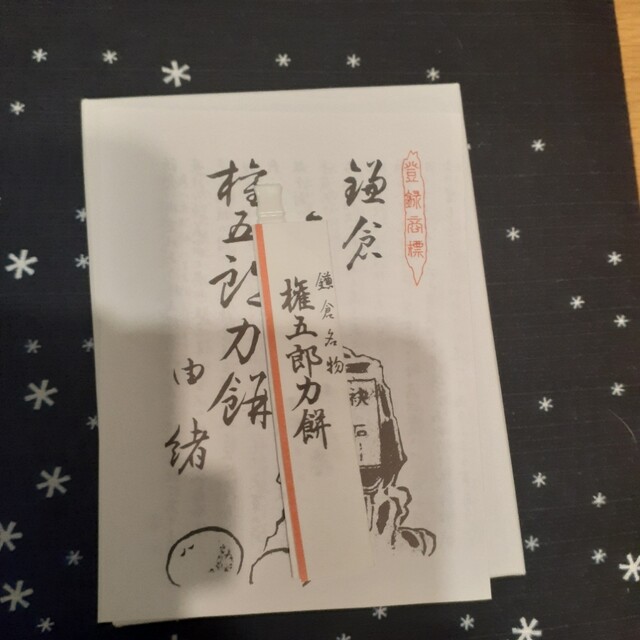 登録商標
鎌倉
権五郎力餅
由緒
鎌倉名物
権五郎力餅
石